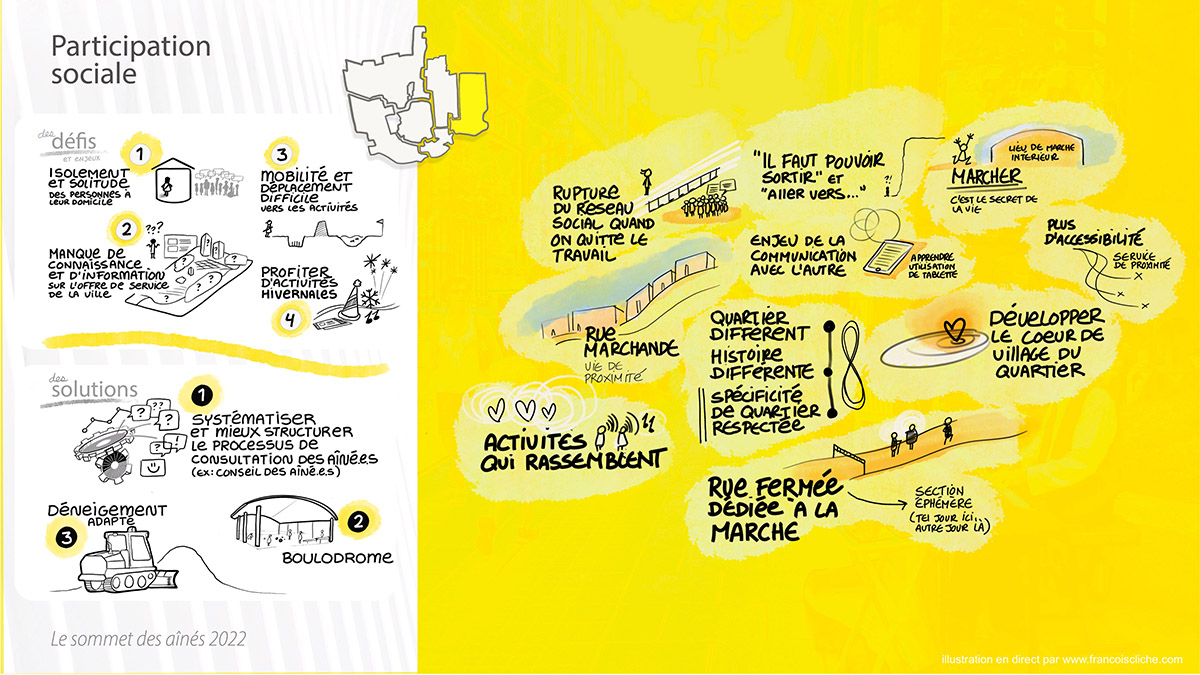 Participation
sociale
des
défis
ET ENJEUX
1
ISOLEMENT
ET SOLITUDE
DES PERSONNES À
LEUR DOMICILE
2
???
MANQUE DE
CONNAISSANCE
ET D'INFORMATION
SUR L'OFFRE DE SERVICE
DE LA VILLE
? ? ? ? ?
3
MOBILITÉ ET
DÉPLACEMENT
DIFFICILE
VERS LES ACTIVITÉS
PROFITER
D'ACTIVITÉS
HIVERNALES
4
des
solutions
1
SYSTÉMATISER
ET MIEUX STRUCTURER
LE PROCESSUS DE
CONSULTATION DES AÎNÉ.E.S
(EX: CONSEIL DES AÎNÉ.E.S)
? ?? ? ?!
DÉNEIGEMENT
ADAPTÉ
3
2
BOULODROME
Le sommet des aînés 2022
RUPTURE
DU RÉSEAU
SOCIAL QUAND
ON QUITTE LE
TRAVAIL
"IL FAUT POUVOIR
SORTIR" ET
"ALLER VERS..."
?!
LIEU DE MARCHE
INTÉRIEUR
MARCHER
C'EST LE SECRET DE
LA VIE
ENJEU DE LA
COMMUNICATION
AVEC L'AUTRE
APPRENDRE
UTILISATION
DE TABLETTE
PLUS
D'ACCESSIBILITÉ
SERVICE
DE PROXIMITÉ
RUE
MARCHANDE
VIE DE
PROXIMITÉ
QUARTIER
DIFFÉRENT
HISTOIRE
DIFFÉRENTE
SPÉCIFICITÉ
DE QUARTIER
RESPECTÉE
DÉVELOPPER
LE COEUR DE
VILLAGE DU
QUARTIER
ACTIVITÉS
QUI RASSEMBLENT
RUE FERMÉE
DÉDIÉE À LA
MARCHE
SECTION
ÉPHÉMÈRE
(TEL JOUR ICI...
AUTRE JOUR LÀ)
illustration en direct par www.francoiscliche.com